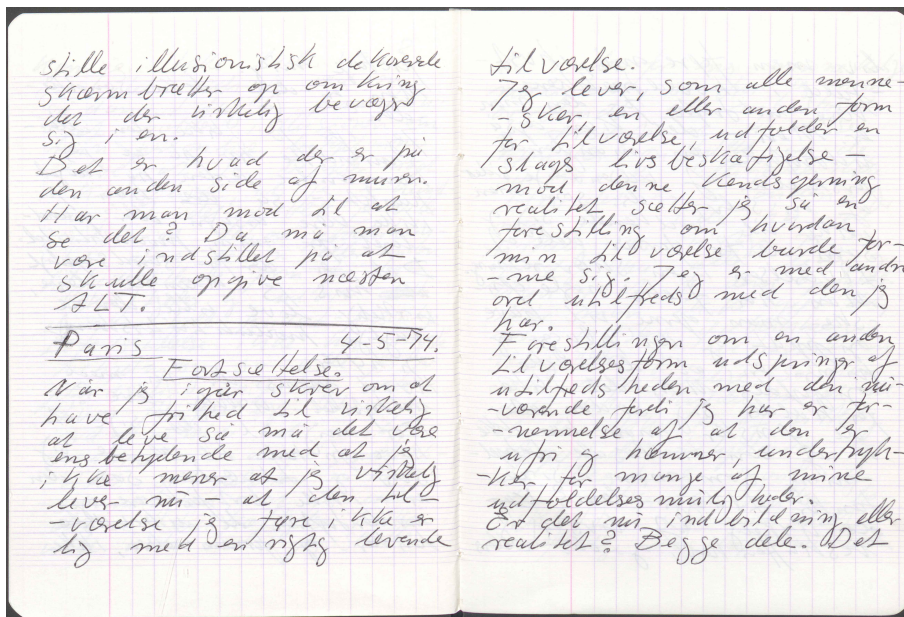 stille illusionistisk dekorerede
skærmbrætter op omkring
det der virkelig bevæger
sig i en.
Det er hvad der er på
den anden side af muren.
Har man mod til at
se det? Da må man
være indstillet på at
skulle opgive næsten
ALT.
Paris 4-5-74.
Fortsættelse.
Når jeg igår skrev om at
have frihed til virkelig
at leve så må det være
ensbetydende med at jeg
ikke mener at jeg virkelig
lever nu – at den til-
-værelse jeg fører ikke er
lig med en rigtig levende
tilværelse.
Jeg lever, som alle menne-
-sker, en eller anden form
for tilværelse, udfolder en
slags livsbeskæftigelse –
mod denne kendsgerning
realitet sætter jeg så en
forestilling om hvordan
min tilværelse burde for-
-me sig. Jeg er med andre
ord utilfreds med den jeg
har.
Forestillingen om en anden
tilværelsesform udspringer af
utilfredsheden med den nu-
-værende fordi jeg har en for-
-nemmelse af at den er
ufri og hæmmer, undertryk-
-ker for mange af mine
udfoldelsesmuligheder.
Er det nu indbildning eller
realitet? Begge dele. Det